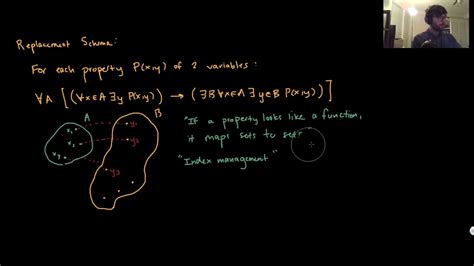 Replacement Schema:
For each property P(x,y) of 2 variables:
∀A [(∀x∈A ∃y P(x,y)) → (∃B ∀x∈A ∃y∈B P(x,y))]
A
B
x₁
y₁
x₂
y₂
x₃
y₃
"If a property looks like a function,
it maps sets to sets
"Index management"